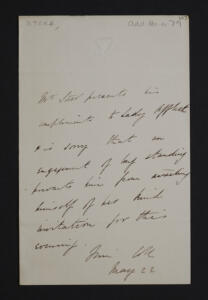 Add. Ms. a. 79
Mr presents his
compliments to Lady
& is sorry that an
engagement of long standing
prevents him from availing
himself of her kind
invitation for this
evening.
May 22